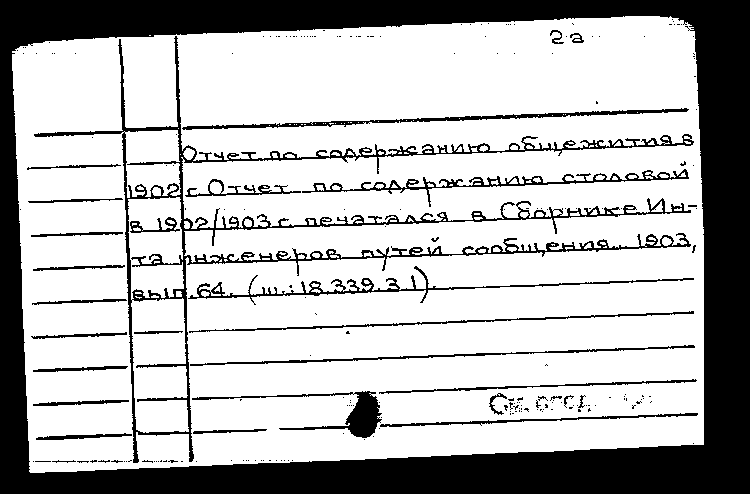 2а
Отчет по содержанию общежития в
1902 г. Отчет по содержанию столовой
в 1902/1903 г. печатался в Сборнике Ин-
та инженеров путей сообщения. 1903,
вып. 64. (ш.: 18.339.3.1).
См.